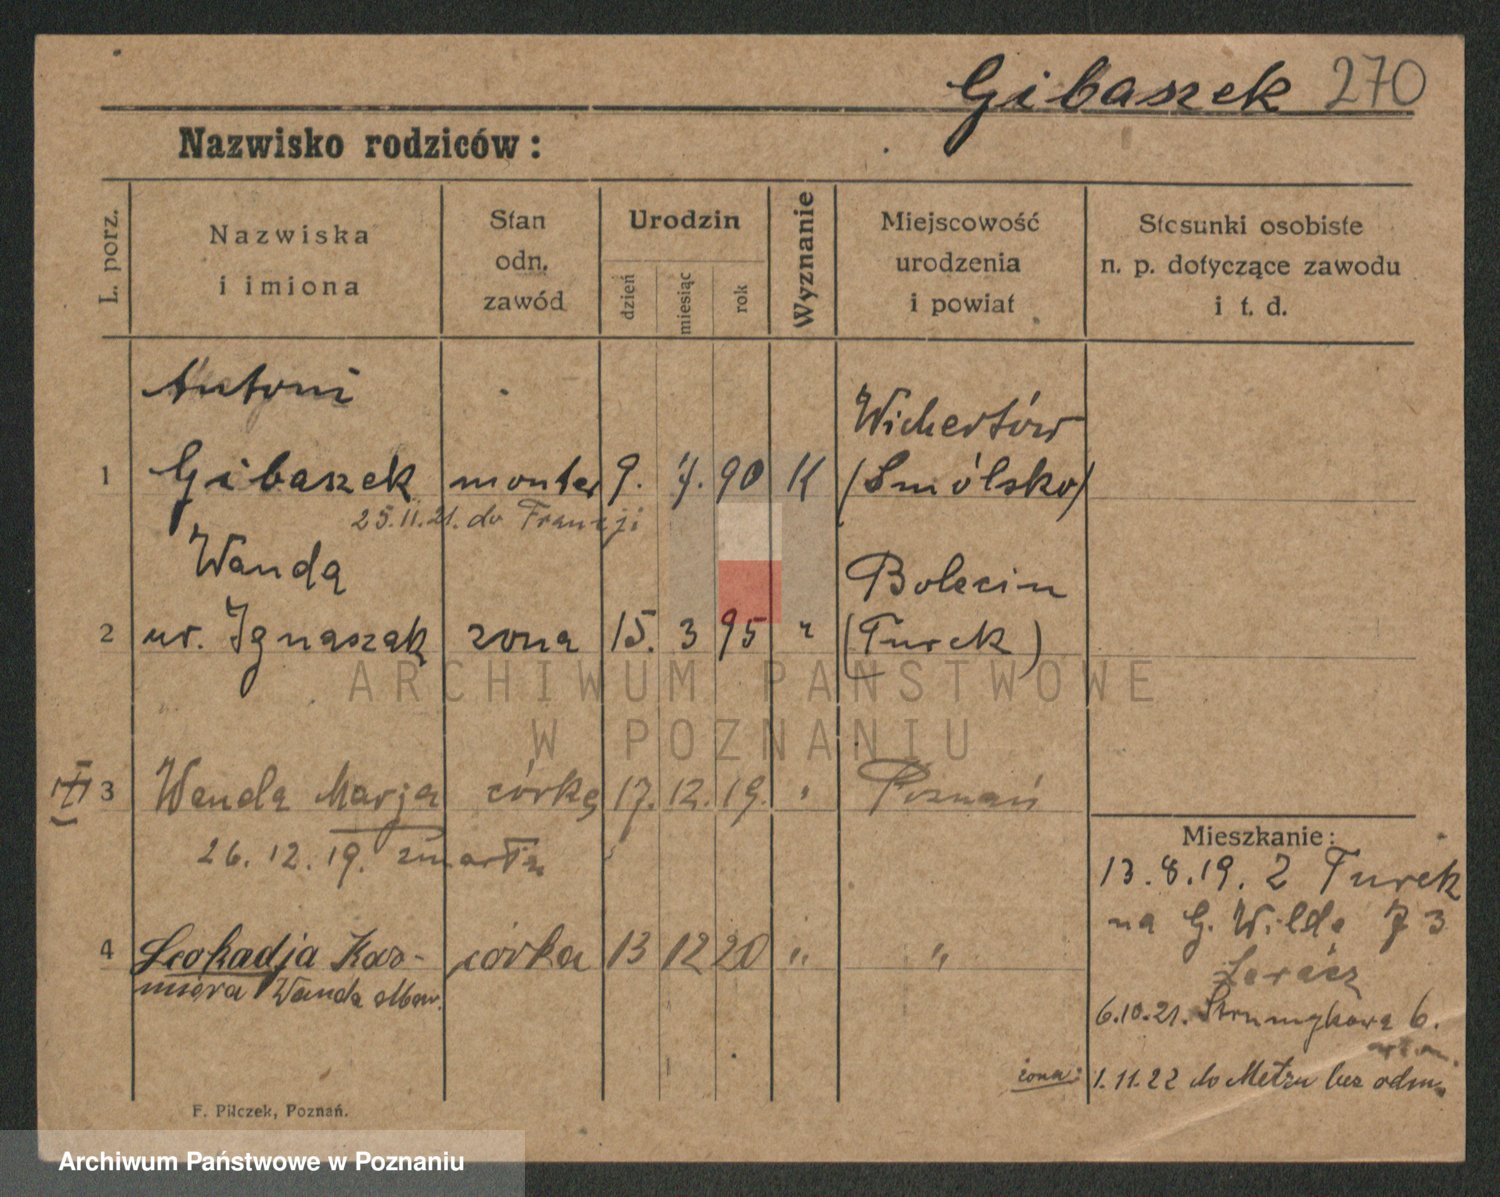 Gibaszek 270
Nazwisko rodziców:
L. porz.
Nazwiska
i imiona
Stan
odn.
zawód
Urodzin
dzień
miesiąc
rok
Wyznanie
Miejscowość
urodzenia
i powiat
Stosunki osobiste
n. p. dotyczące zawodu
i t. d.
Antoni
Wichertów
1 Gibaszek monter 9. 90 K (Smólsko)
25.11.21. do Francji
Wanda
Bolecin
2 ur. Ignaszak żona 15. 3 95 " (Turek)
ARCHIWUM PAŃSTWOWE
W POZNANIU
3 Wanda Marja córka 17. 12. 19. " Poznań
26. 12. 19. zmarła
Mieszkanie:
13. 8. 19. Z Turek
na G. Wilda 73
4 Leokadja Kaz- córka 13 12 20 " "
miera Wanda
6.10.21. Strumykowa 6.
żona: 1.11.22 do Metzu bez odm.
F. Pilczek, Poznań.
Archiwum Państwowe w Poznaniu